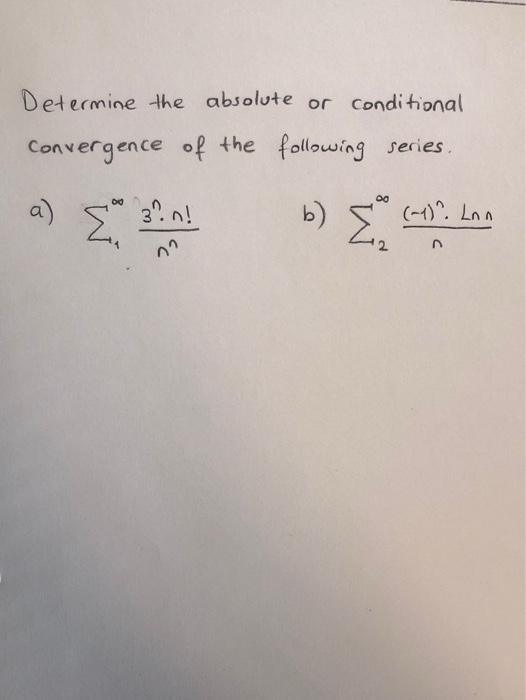 Determine the absolute or conditional
convergence of the following series.
a) ∑₁^∞ 3ⁿ·n!/nⁿ b) ∑₂^∞ (-1)ⁿ·Ln n/n